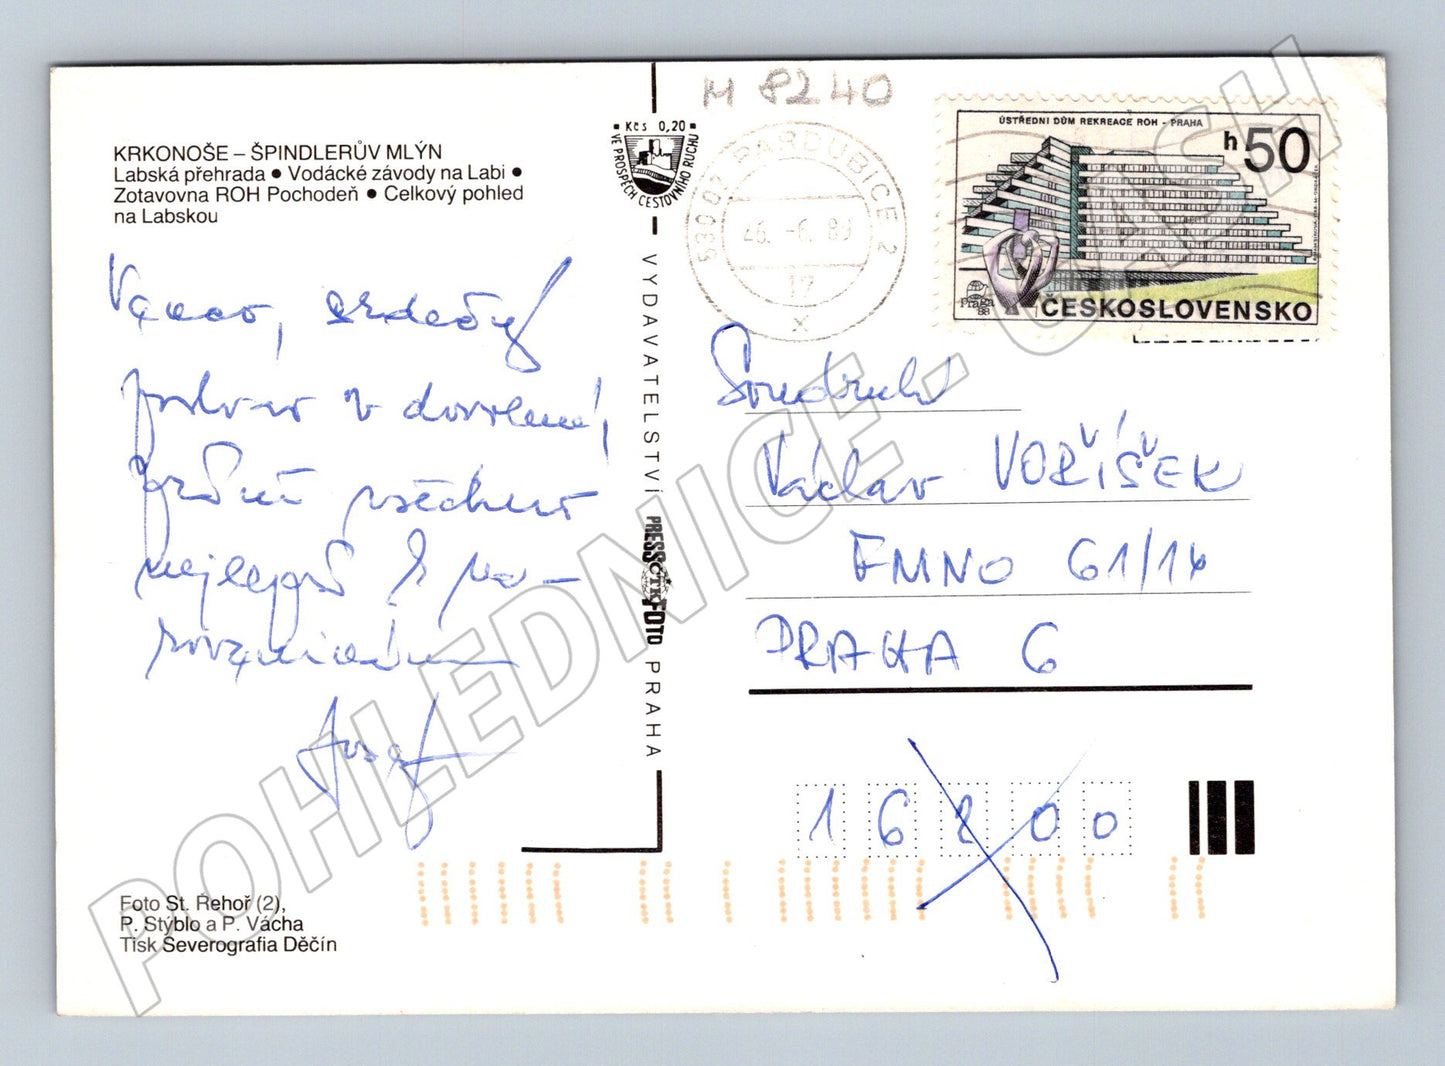 M 8240
KRKONOŠE – ŠPINDLERŮV MLÝN
Labská přehrada • Vodácké závody na Labi •
Zotavovna ROH Pochodeň • Celkový pohled
na Labskou
Kčs 0,20
VE PROSPĚCH CESTOVNÍHO RUCHU
530 02 PARDUBICE 2
26.-6. 89
17
x
ÚSTŘEDNÍ DŮM REKREACE ROH - PRAHA
h 50
Praga 88
ČESKOSLOVENSKO
srdečný
pozdrav z dovolené,
všechno
nejlepší k na-
rozeninám
Josef
VYDAVATELSTVÍ PRESSFOTO PRAHA
ČTK
Soudruh
Václav VOŘÍŠEK
FMNO 61/14
PRAHA 6
16200
Foto St. Řehoř (2),
P. Stýblo a P. Vácha
Tisk Severografia Děčín
POHLEDNICE.CASH